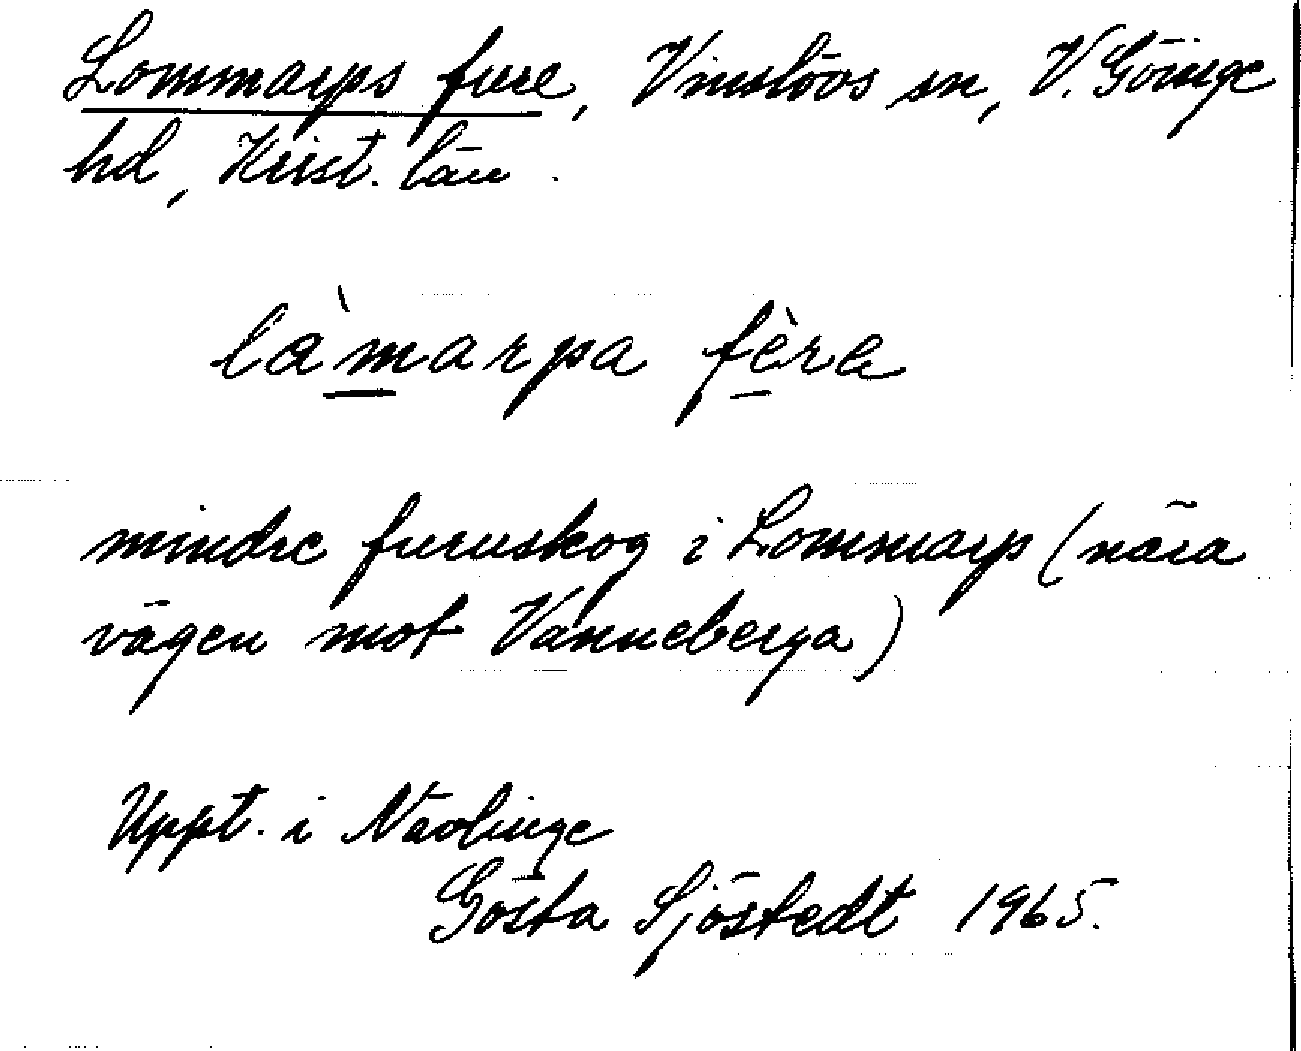 Lommarps fure, Vinslövs sn, V. Göinge
hd, Krist. län.
làmarpa fère
mindre furuskog i Lommarp (nära
vägen mot Vanneberga)
Uppt. i Nävlinge
Gösta Sjöstedt 1965.